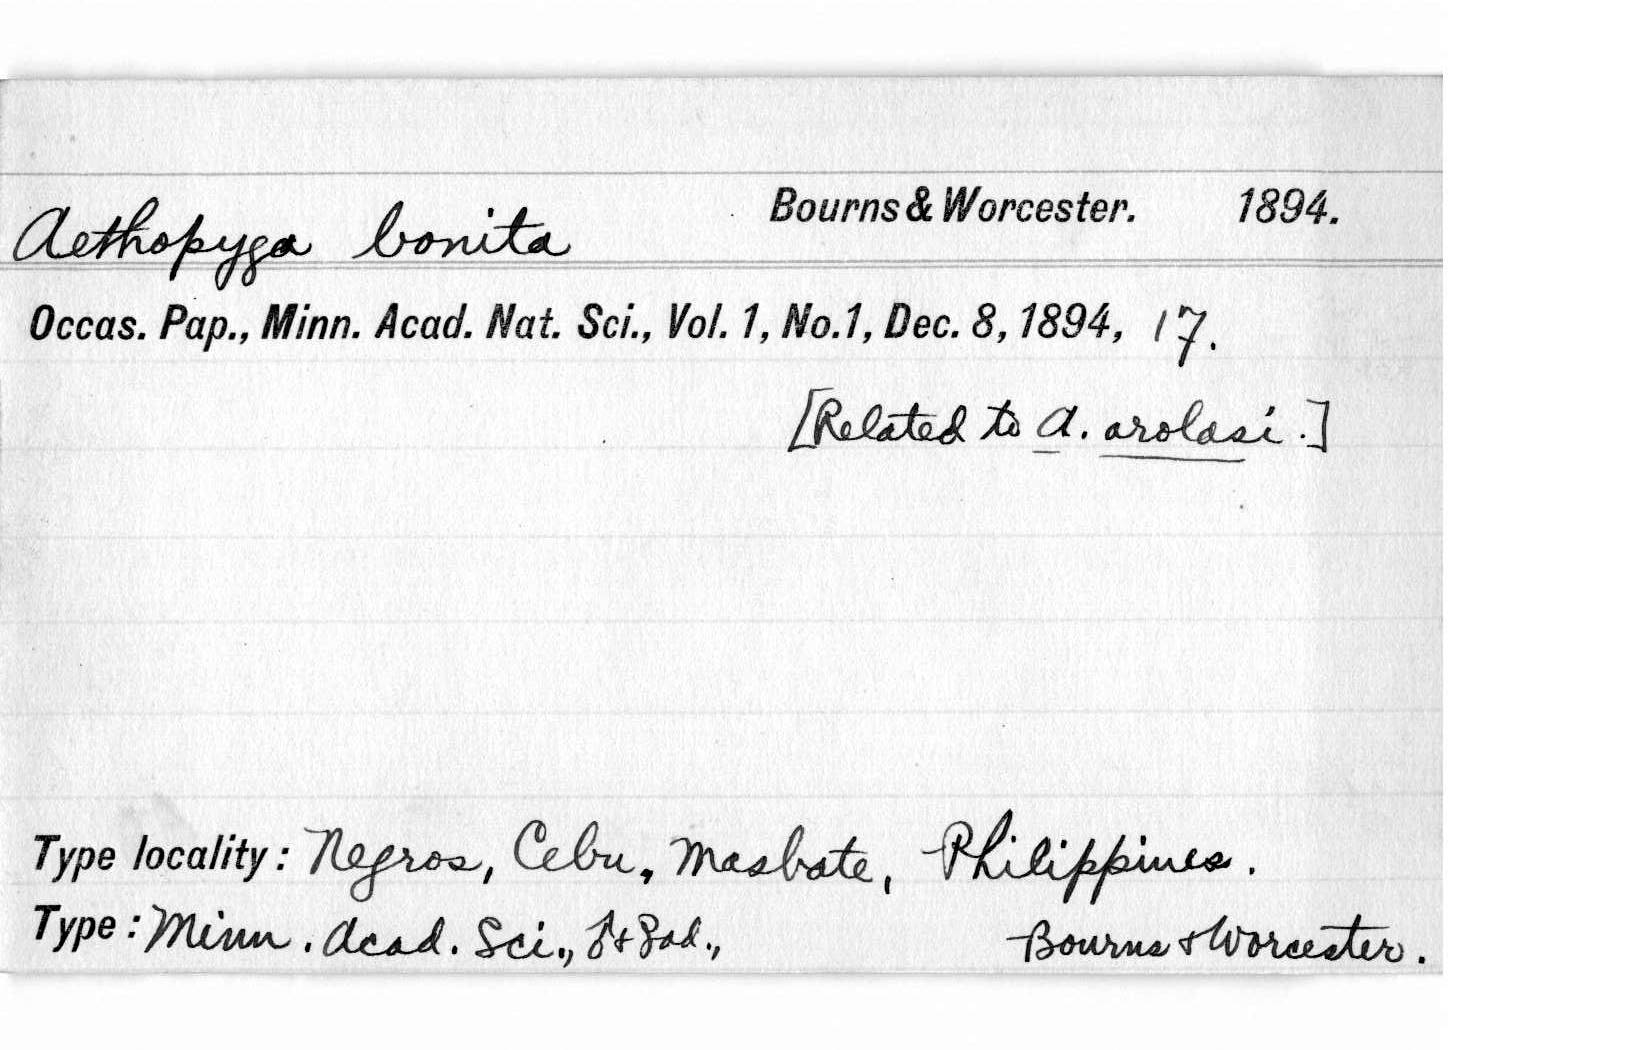 Aethopyga bonita Bourns & Worcester. 1894.
Occas. Pap., Minn. Acad. Nat. Sci., Vol. 1, No. 1, Dec. 8, 1894, 17.
[Related to A. arolasi.]
Type locality: Negros, Cebu, Masbate, Philippines.
Type: Minn. Acad. Sci., ♂ + ♀ ad., Bourns & Worcester.